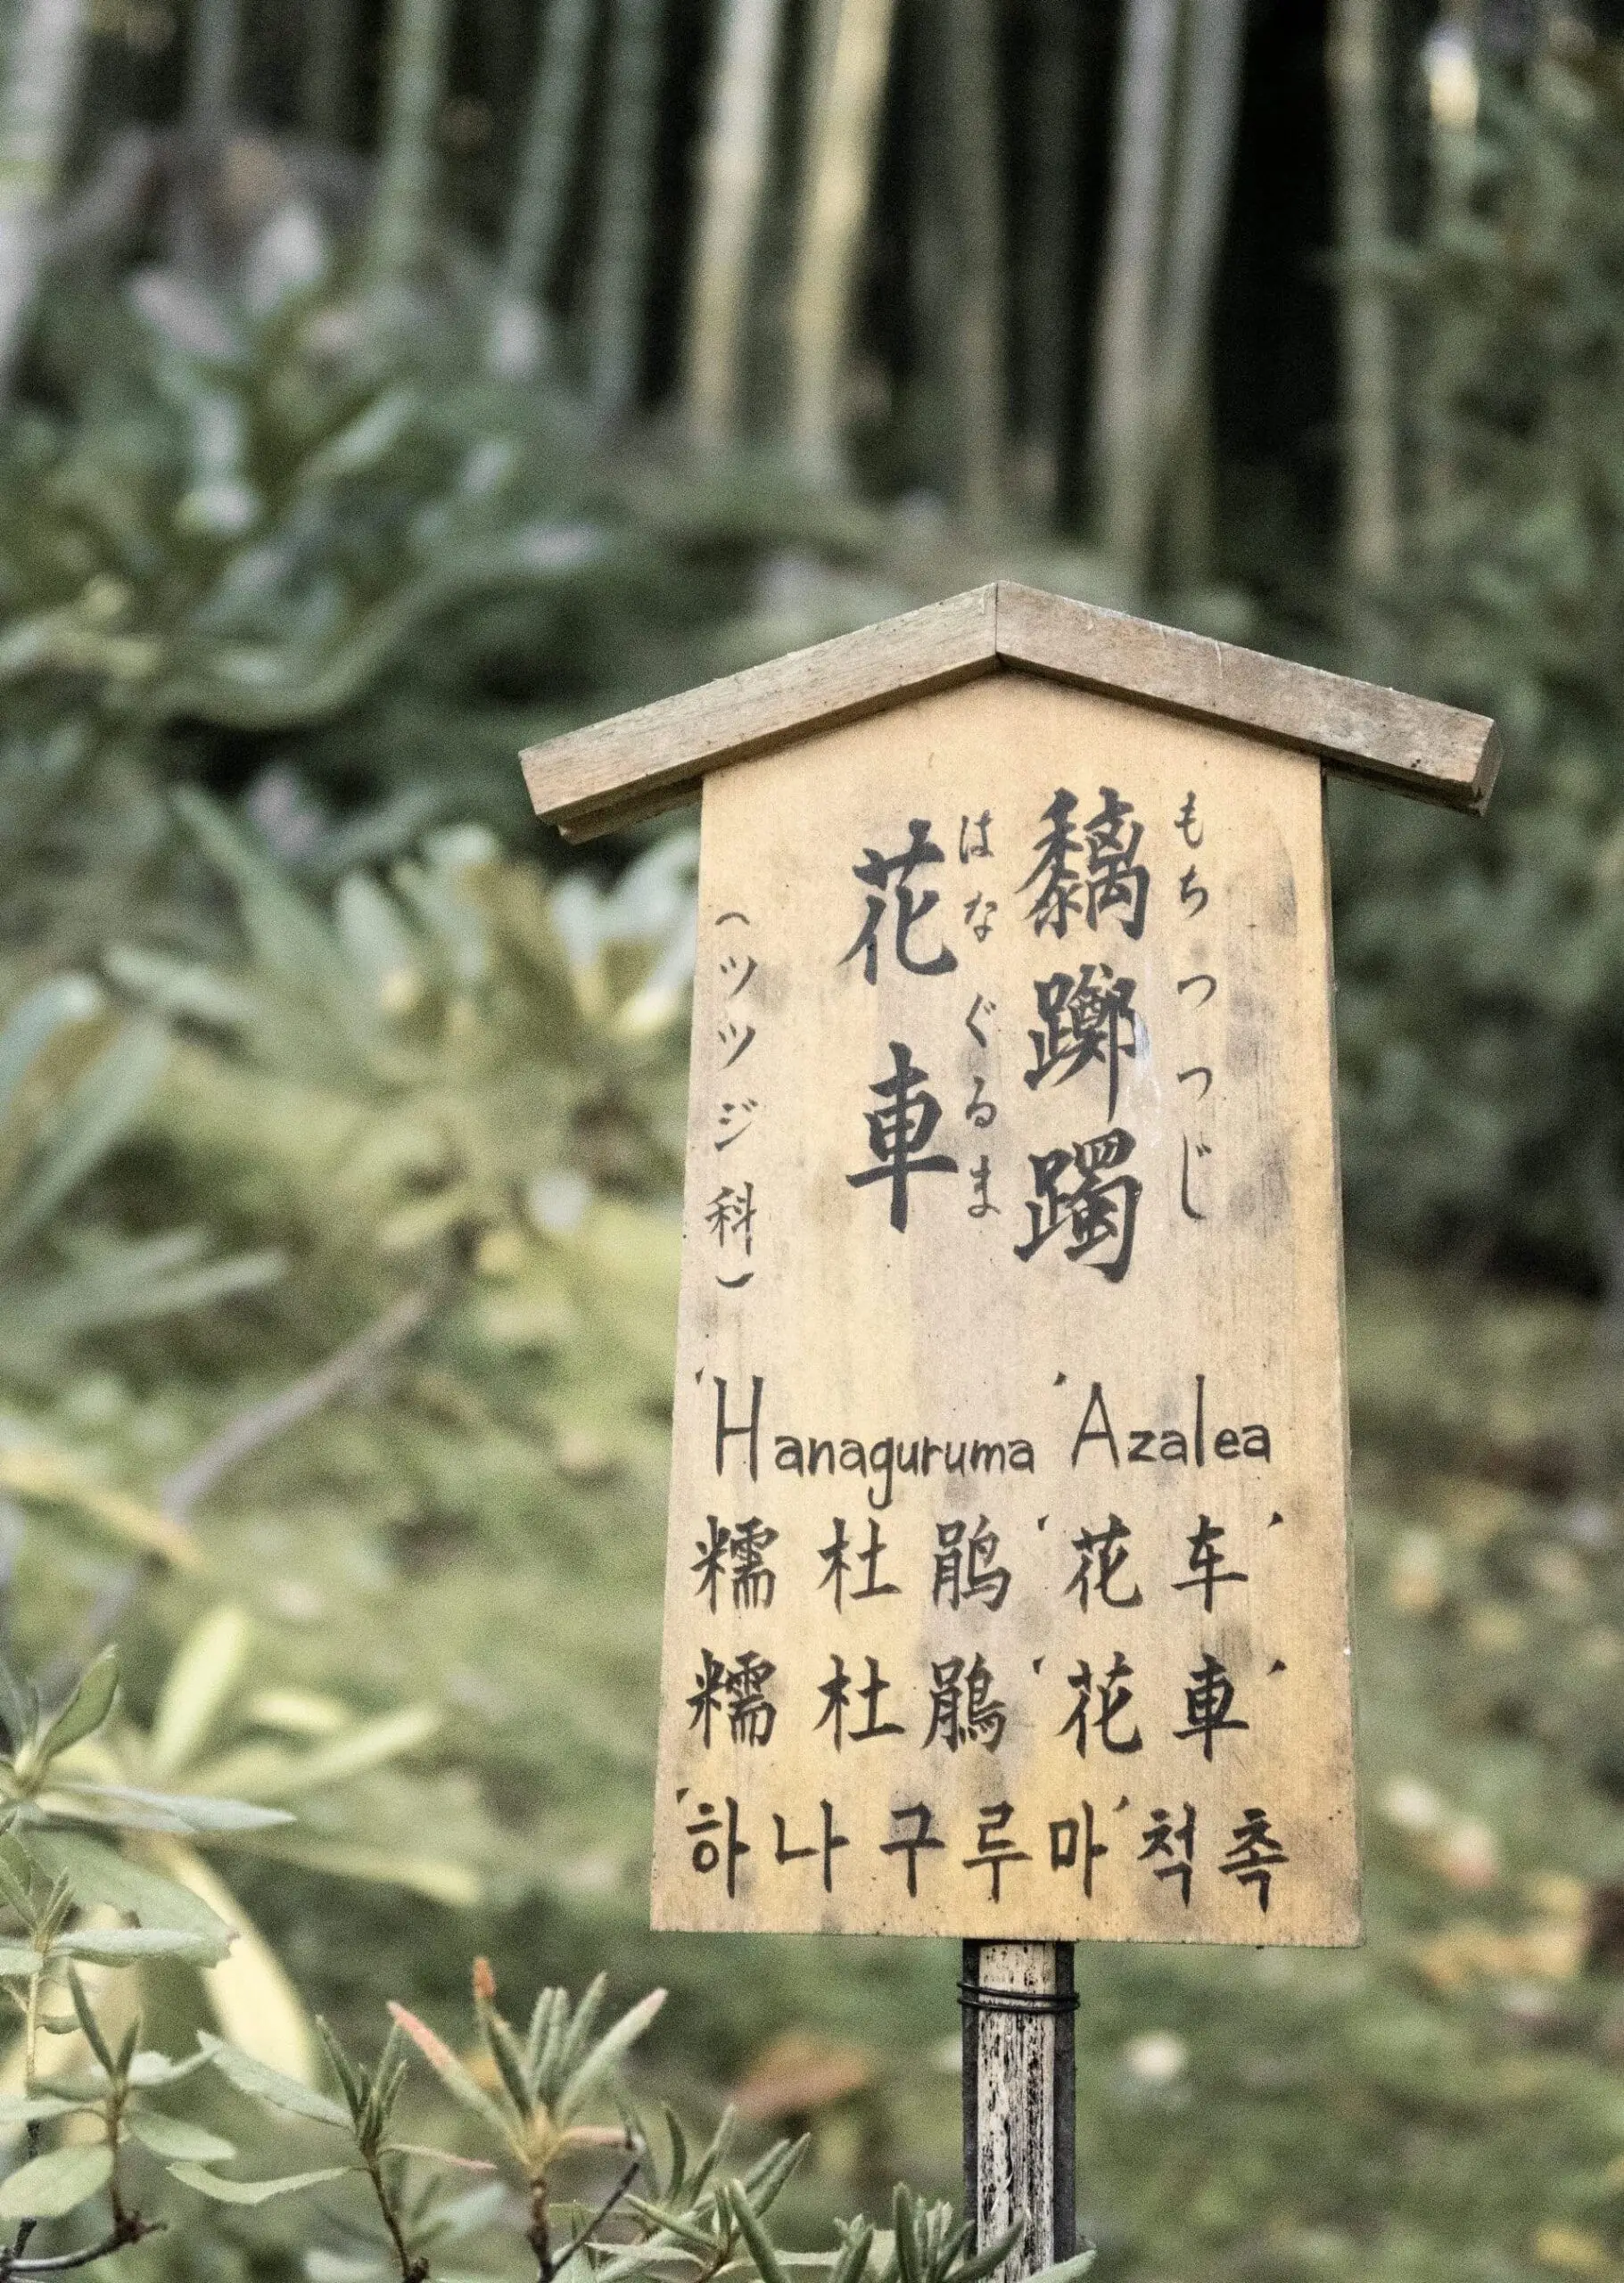 もちつつじ
黐躑躅
はなぐるま
花車
（ツツジ科）
'Hanaguruma' Azalea
糯杜鹃'花车'
糯杜鵑'花車'
'하나구루마'척촉